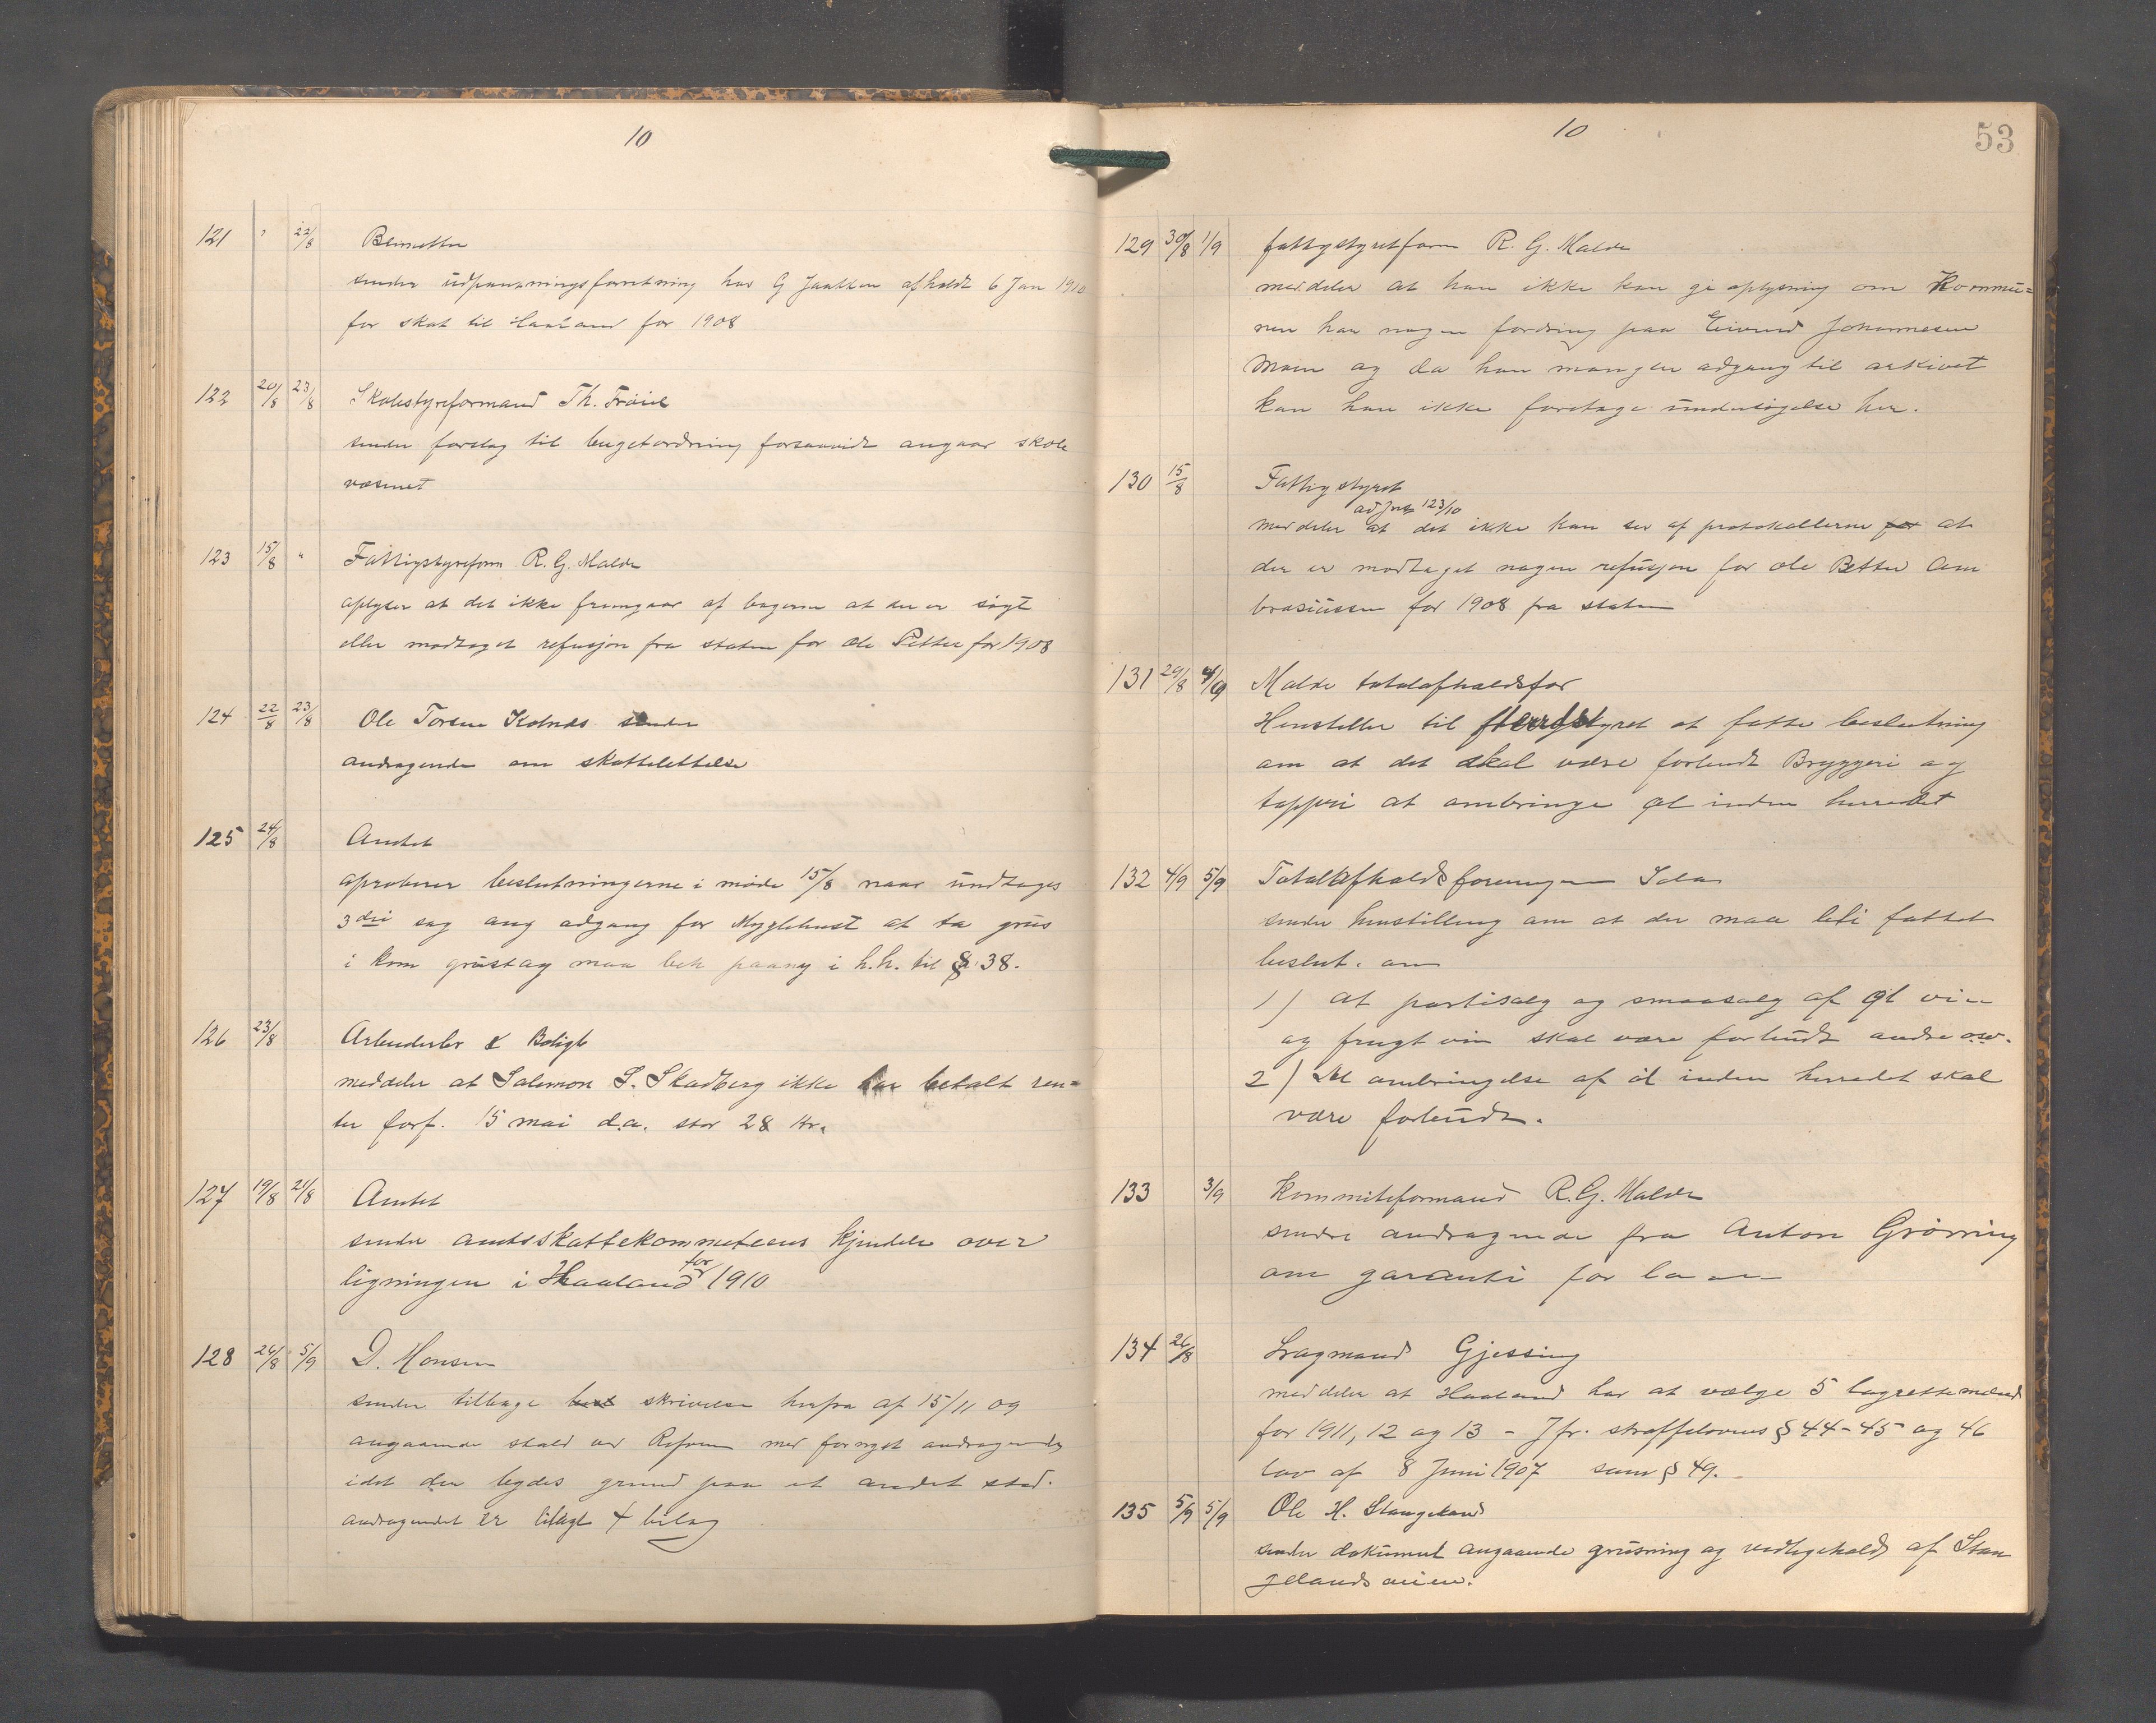 10
121 " 22/8
sender udpantningsforretning hos G Jaatten afholdt 6 Jan 1910
for skat til Haaland for 1908
122 20/8 23/8 Skolestyreformand Th. Frøile
sender forslag til bugetordning forsaavidt angaar skole
væsenet
123 15/8 " Fattigstyreform R. G. Malde
oplyser at det ikke fremgaar af bøgerne at der er søgt
eller modtaget refusjon fra staten for Ole Petter for 1908
124 22/8 23/8 Ole Torsen Kolnæs sender
andragende om skattelettelse
125 24/8 Amtet
aproberer beslutningerne i møde 15/8 naar undtages
3die sag ang adgang for Myglehust at ta grus
i kom grustag maa beh paany i h.h. til § 38.
126 23/8 Arbeiderbr & Boligb
meddeler at Salemon S. Skadberg ikke har betalt ren=
ter forf. 15 mai d.a. stor 28 Kr.
127 19/8 21/8 Amtet
sender amtsskattekommiteens kjendelse over
ligningen i Haaland for 1910
128 26/8 5/9 D. Hansen
sender tilbage skrivelse herfra af 15/11 09
angaaende stald ved Refsnes med fornyet andragende
idet der bydes grund paa et andet sted.
andragendet er bilagt 4 bilag
10
53
129 30/8 1/9 fattigstyreform R. G. Malde
meddeler at han ikke kan gi oplysning om Kommu=
nen har nogen fordring paa Eivind Johannesen
Moen og da han mangler adgang til arkivet
kan han ikke foretage undersøgelse her.
130 15/8 Fattigstyret
ad Jnr 123/10
meddeler at det ikke kan ses af protokollerne for at
der er modtaget nogen refusjon for Ole Petter Am
brosiussen for 1908 fra staten
131 29/8 4/9 Malde totalafholdsfor
Henstiller til herredstyret at fatte beslutning
om at det skal være forbudt Bryggeri og
tapperi at ombringe øl inden herredet
132 4/9 5/9 Totalafholdsforeningen Sola
sender henstilling om at der maa bli fattet
beslut. om
1) At partisalg og smaasalg af øl vin
og frugtvin skal være forbudt andre osv.
2) At ombringelse af øl inden herredet skal
være forbudt.
133 3/9 Kommiteformand R. G. Malde
sender andragende fra Anton Grørring
om garanti for laan
134 26/8 Lagmand Gjessing
meddeler at Haaland har at vælge 5 lagrettemænd
for 1911, 12 og 13 - Jfr. straffelovens § 44-45 og 46
lov af 8 Juni 1907 sam § 49.
135 5/9 5/9 Ole H. Stangeland
sender dokument angaaende grusning og vedligehold af Stan
gelandsveien.